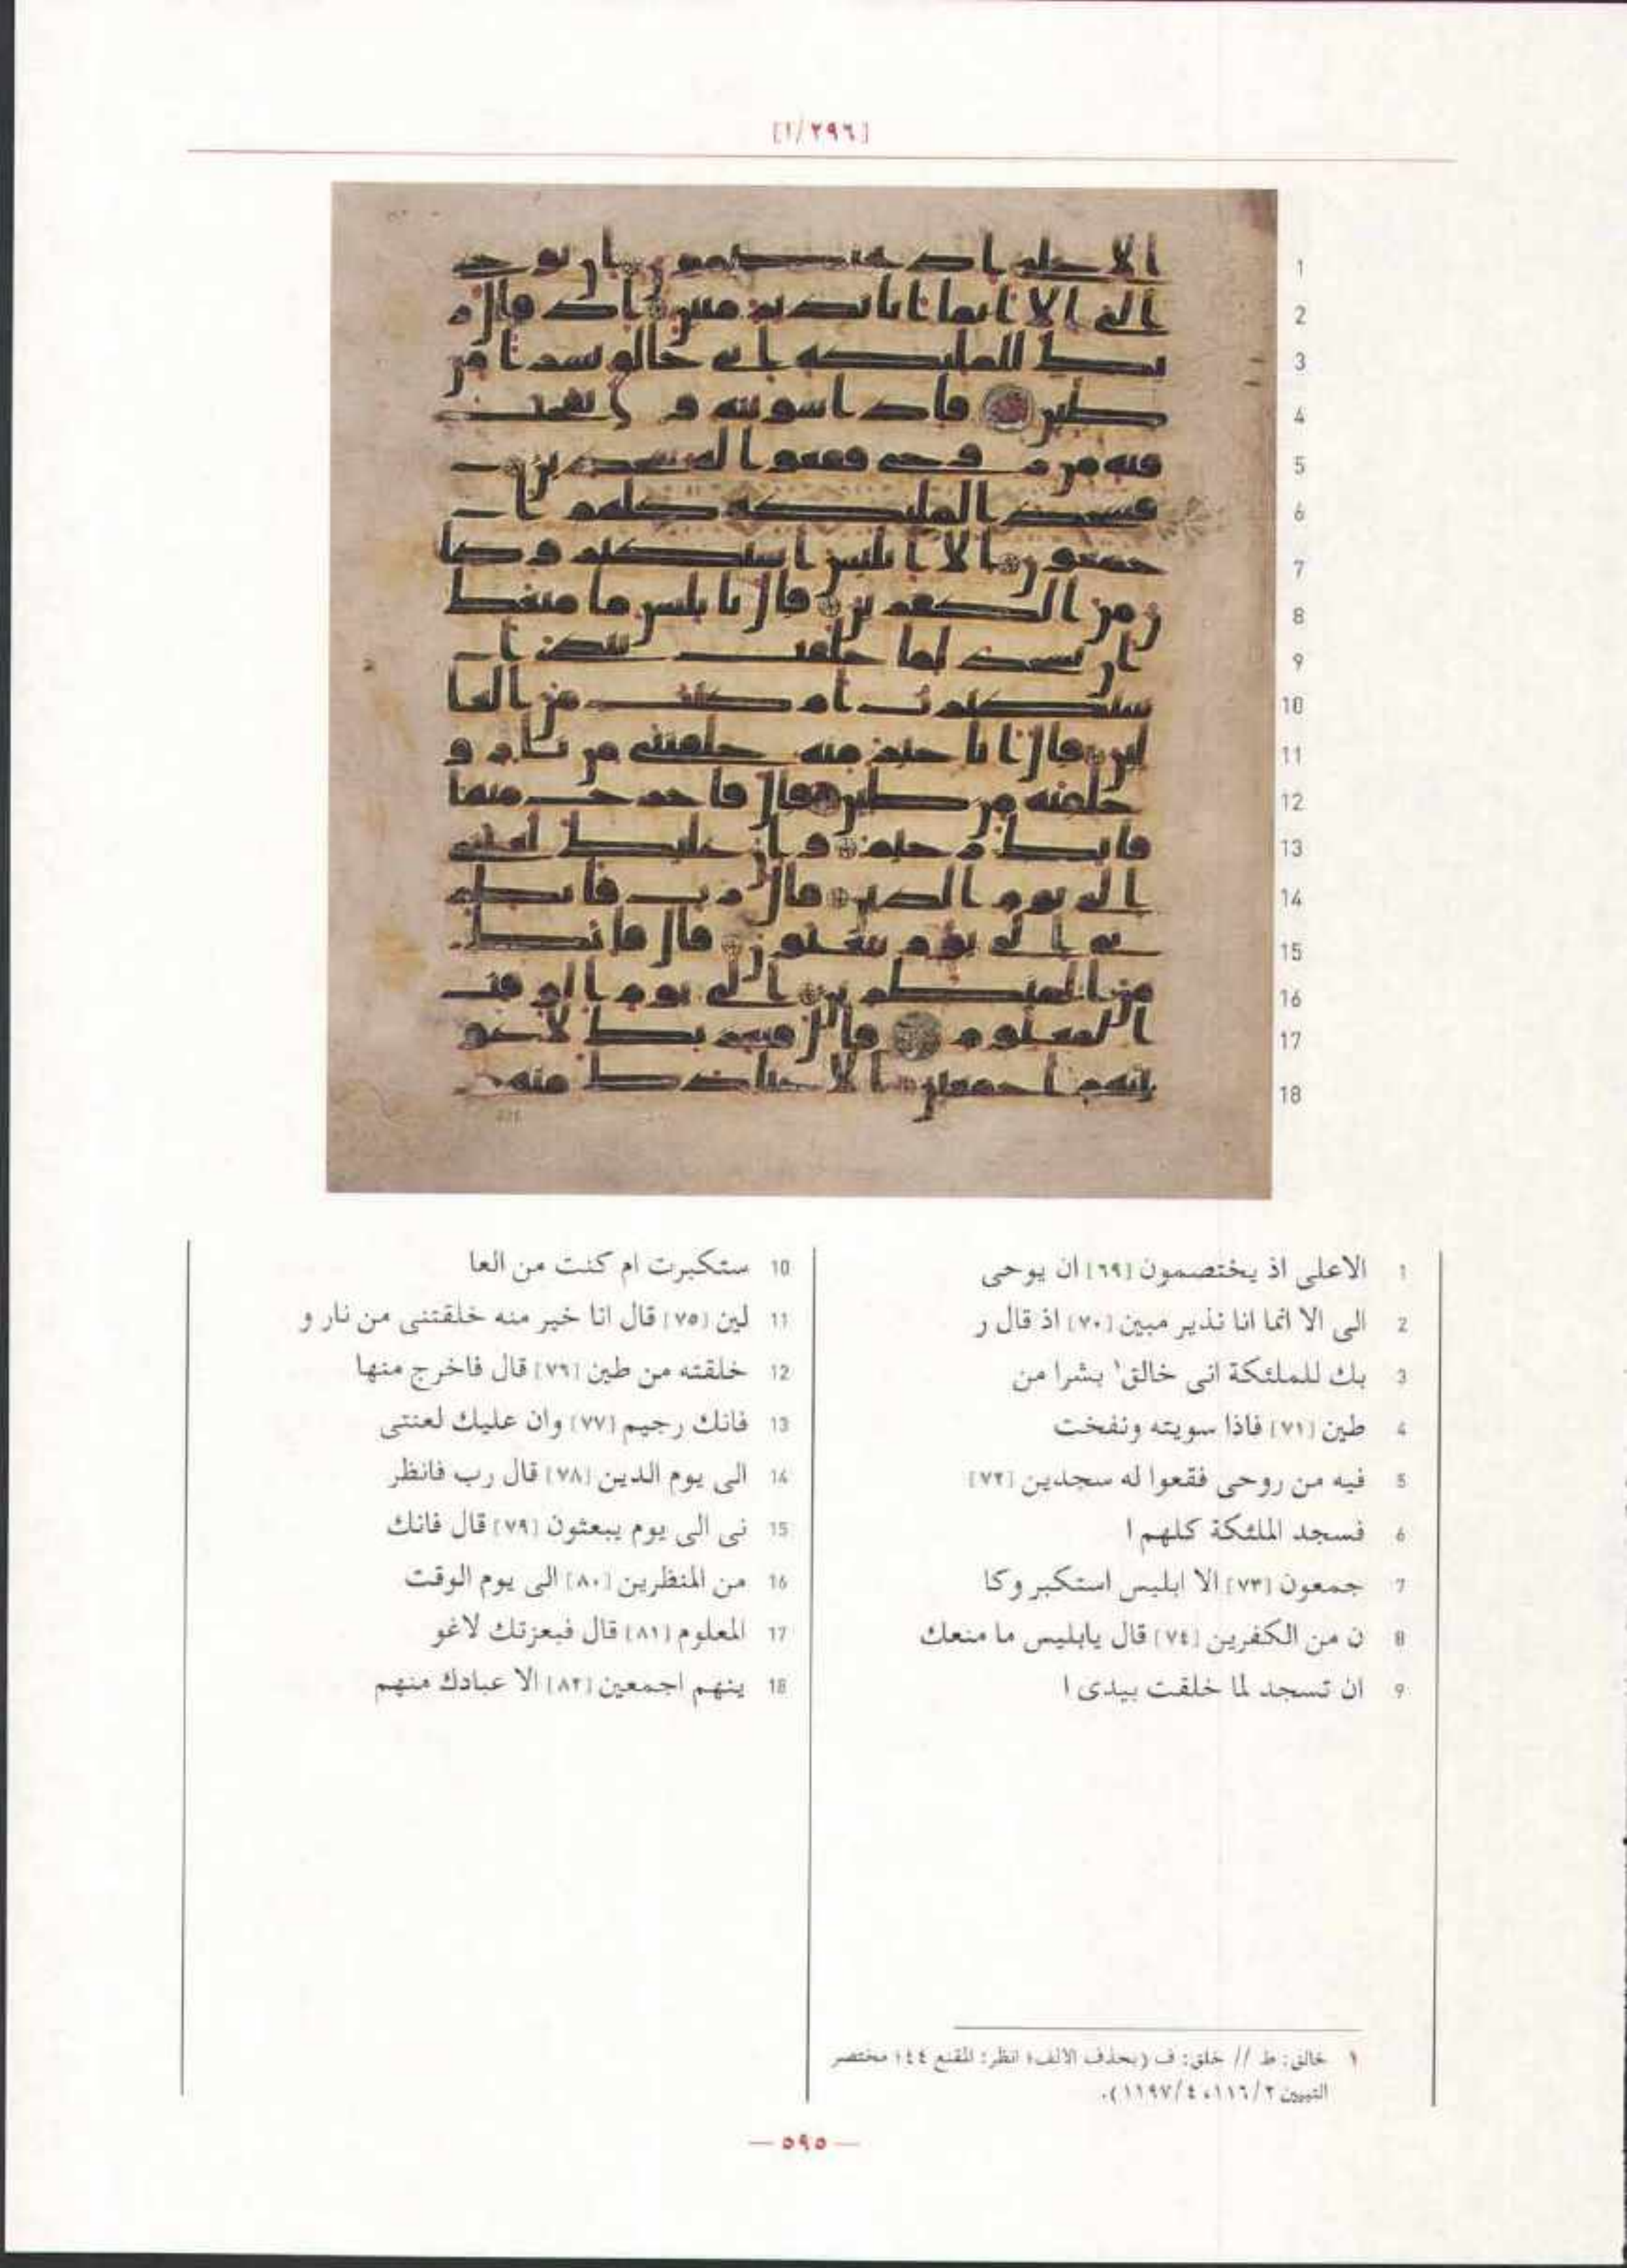 [٢٩٦/١]
1 الاعلى اذ يختصمون [٦٩] ان يوحى
2 الى الا انما انا نذير مبين [٧٠] اذ قال ر
3 بك للملئكة انى خالق١ بشرا من
4 طين [٧١] فاذا سويته ونفخت
5 فيه من روحى فقعوا له سجدين [٧٢]
6 فسجد الملئكة كلهم ا
7 جمعون [٧٣] الا ابليس استكبر وكا
8 ن من الكفرين [٧٤] قال يابليس ما منعك
9 ان تسجد لما خلقت بيدى ا
10 ستكبرت ام كنت من العا
11 لين [٧٥] قال انا خير منه خلقتنى من نار و
12 خلقته من طين [٧٦] قال فاخرج منها
13 فانك رجيم [٧٧] وان عليك لعنتى
14 الى يوم الدين [٧٨] قال رب فانظر
15 نى الى يوم يبعثون [٧٩] قال فانك
16 من المنظرين [٨٠] الى يوم الوقت
17 المعلوم [٨١] قال فبعزتك لاغو
18 ينهم اجمعين [٨٢] الا عبادك منهم
١ خالق: ط // خلق: ف (بحذف الالف؛ انظر: المقنع ٤٤؛ مختصر
التبيين ١١٦/٢، ١١٩٧/٤).
— ٥٩٥ —